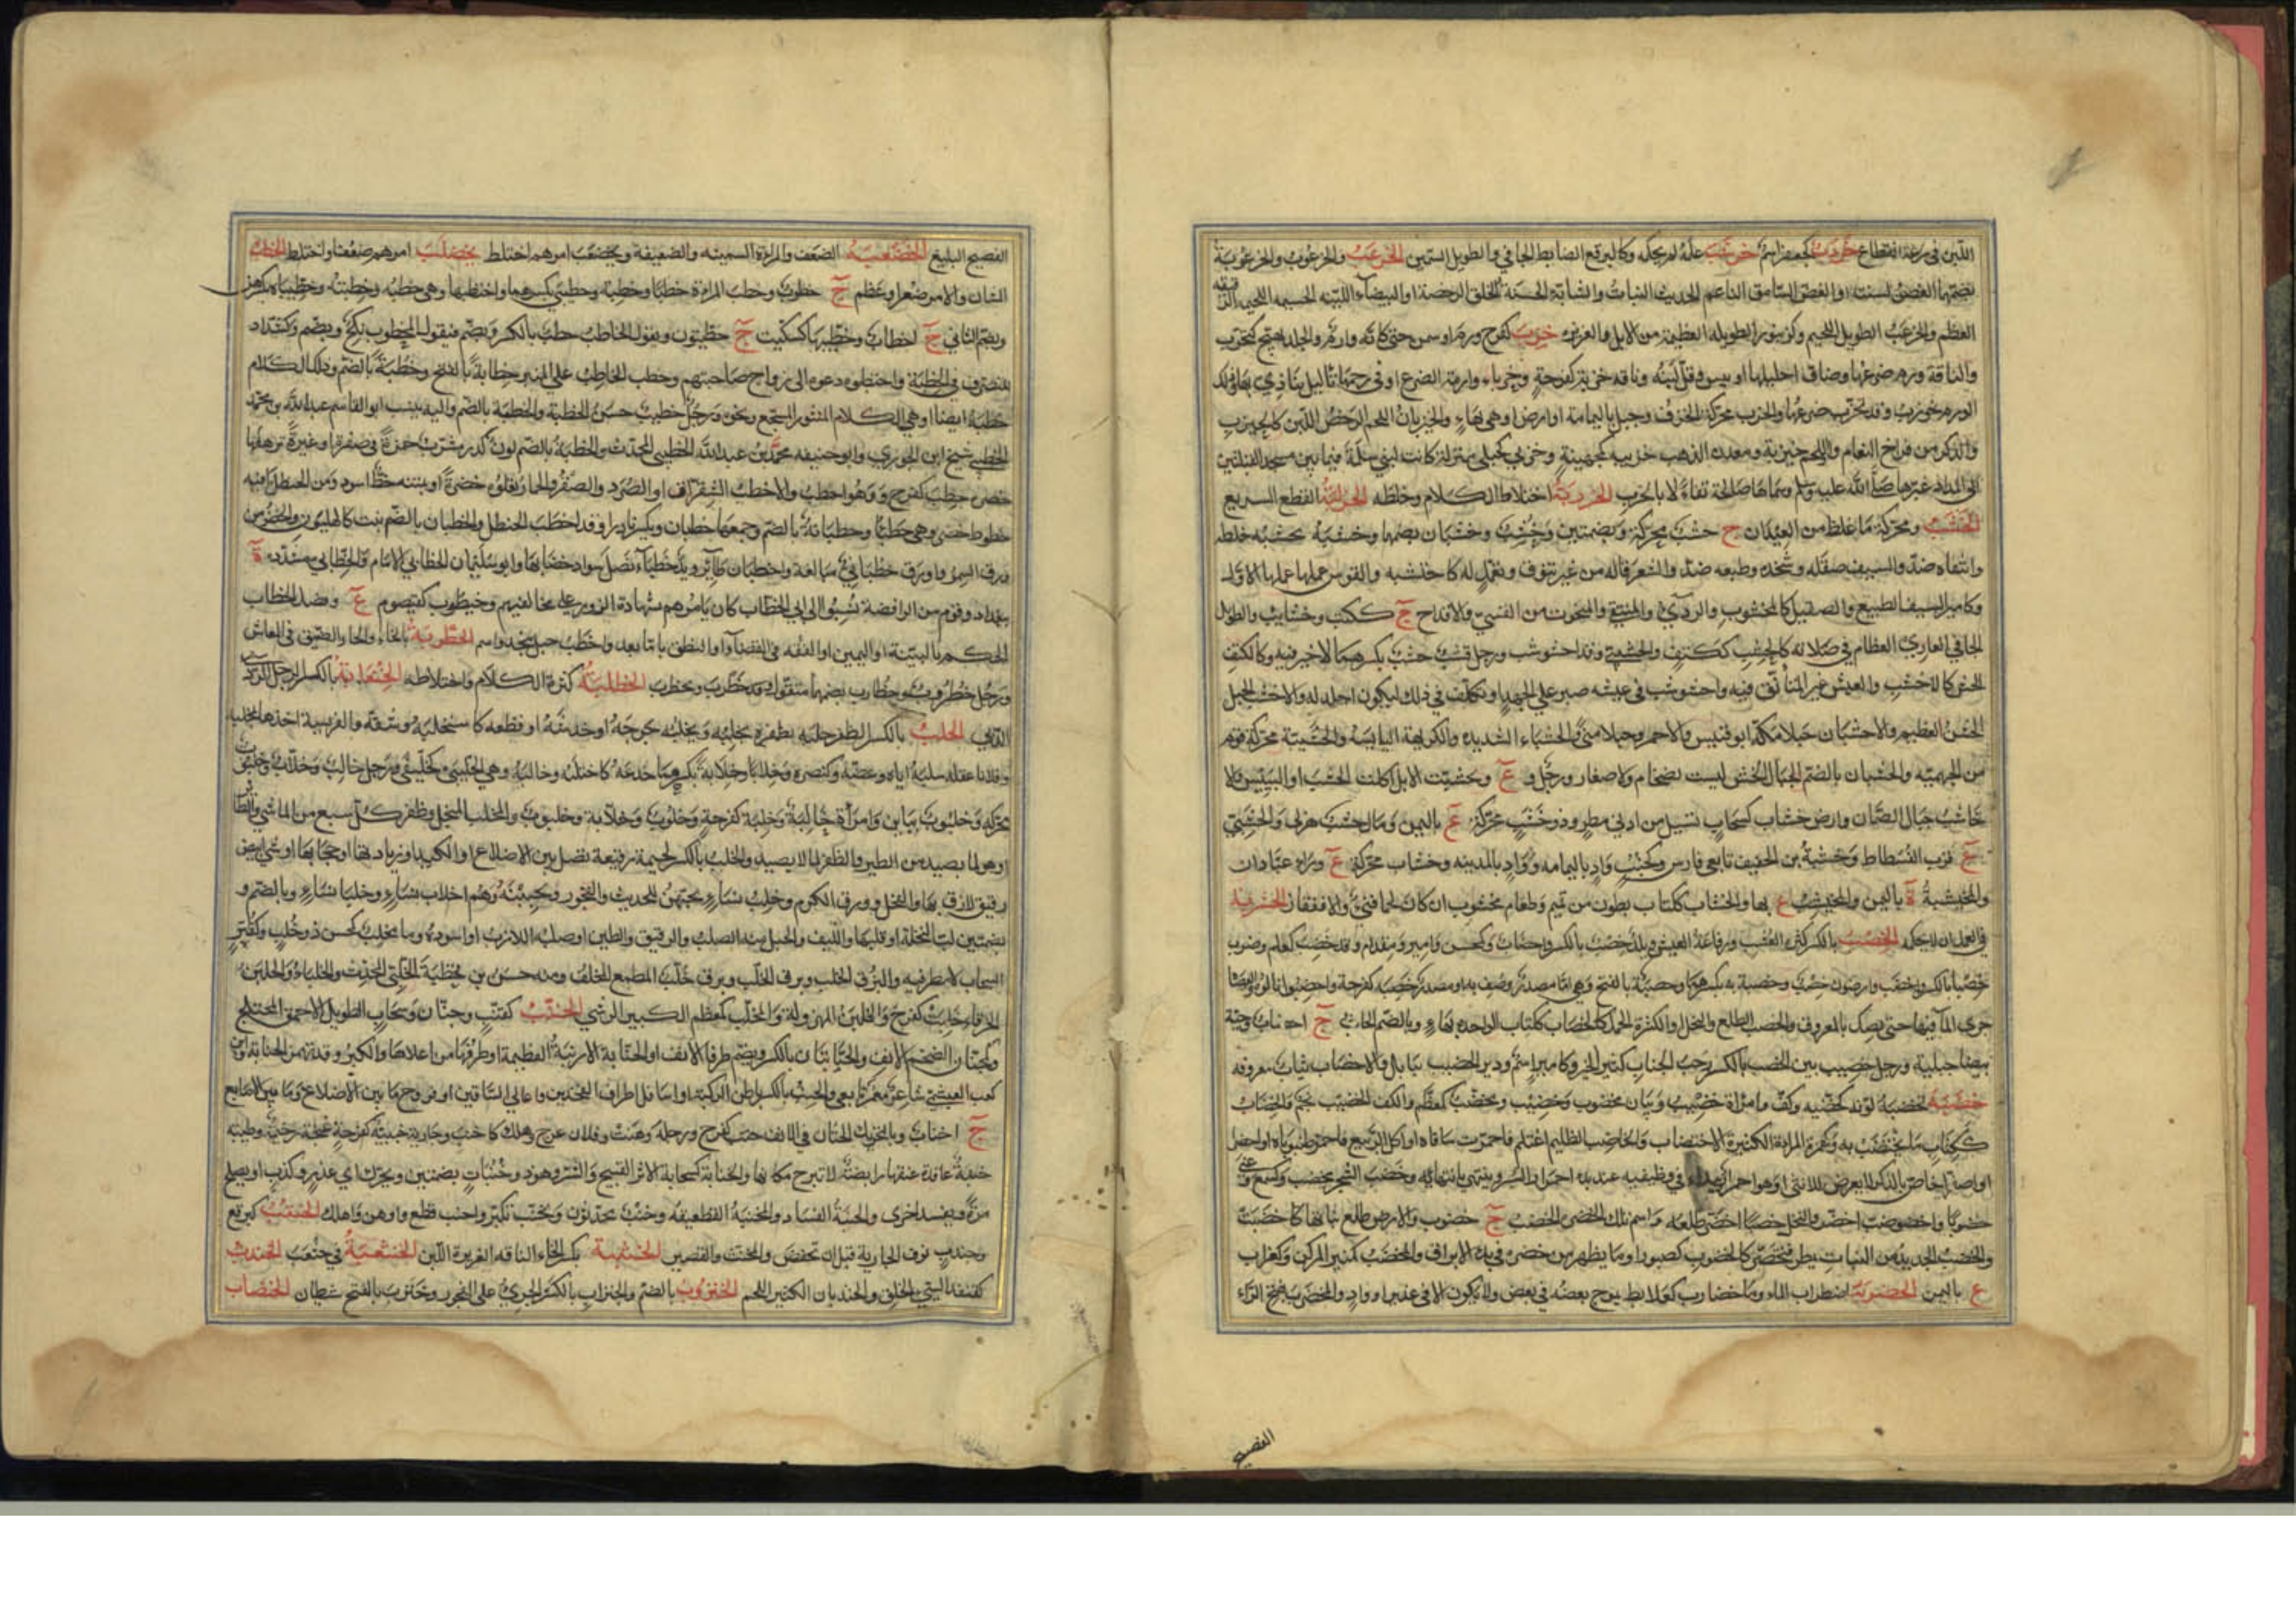 اللبن فى رغد انقطاع خردب كجعفر اسم خرشب عمله لم يحكمه وكالبرقع الضابط الجافى والطويل السمين الخرعب والخرعوب والخرعوبة
بضمهما الغصن لسنته او الغض السامق الناعم الحديث النبات والشابة الحسنة الخلق الرخصة او البيضاء اللينة الجسيمة اللحيمة الرقيقة
العظم والخرعب الطويل اللحيم وكزنبور الطويلة العظيمة من الابل والغزيرة خزب كفرح ورم او سمن حتى كانه وارم والجلد تهيج كتخزب
والناقة ورم ضرعها وضاق احليلها او يبس وقل لبنه وناقة خزبة كفرحة وخزباء وارمة الضرع او فى رحمها ثاليل يتاذى بها وذلك
الورم خوزب وقد تخزب ضرعها والخزب محركة الخزف وجبل باليمامة او ارض او هى بهاء والخيزبان اللحم الرخص اللين كالخيزب
والذكر من فراخ النعام واللحمة خيزبة ومعدن الذهب خزيبة كجهينة وخزبى كحبلى منزلة كانت لبنى سلمة فيما بين مسجد القبلتين
الى المذاد غيرها صلى الله عليه وسلم وسماها صالحة تفاءلا بالخزب الخزربة اختلاط الكلام وخطله الخزلبة القطع السريع
الخشب ومحركة ما غلظ من العيدان ج خشب محركة وبضمتين وخشب وخشبان بضمهما وخشبه يخشبه خلطه
وانتقاه ضد والسيف صقله وشحذه وطبعه ضد والشعر قاله من غير تنوق وتعمل له كاختشبه والقوس عملها عملها الاول
وكامير السيف الطبيع والصقيل كالمخشوب والردىء والمنتقى والمنحوت من القسى والاقداح ج ككتب وخشائب والطوال
الجافى العارى العظام فى صلابة كالخشب ككتف والخشيبى وقد اخشوشب ورجل قشب خشب بكسرهما لا خير فيه وكالكتف
الخشن كالاخشب والعيش غير المتانق فيه واخشوشب فى عيشه صبر على الجهد او تكلف فى ذلك ليكون اجلد له والاخشب الجبل
الخشن العظيم والاخشبان جبلا مكة ابو قبيس والاحمر وجبلا منى والخشباء الشديدة والكريهة اليابسة والخشبية محركة قوم
من الجهمية والخشبان بالضم الجبال الخشن ليست بضخام ولا صغار ورجل و ع وتخشبت الابل اكلت الخشب او اليبيس والا
خاشب جبال الصمان وارض خشاب كسحاب تسيل من ادنى مطر وذو خشب محركة ع باليمن ومال خشب هزلى والخشبى
ع قرب الفسطاط وخشبة بن الخفيف تابعى فارس وكجنب واد باليمامة وواد بالمدينة وخشاب محركة ع وراء عبادان
والمخيشبة ة باليمن والمخيشب ع بها والخشاب ككتاب بطون من تميم وطعام مخشوب ان كان لحما فنىء والا فقفار الخشربة
فى العمل ان لا يحكمه الخصب بالكسر كثرة العشب ورفاغة العيش وبلد خصب بالكسر واخصاب وكمحسن وامير ومقدام وقد خصب كعلم وضرب
خصبا بالكسر واخصب وارضون خصب وخصبة بكسرهما وخصبة بالفتح وهى اما مصدر وصف به او مصدر خصبه كفرحة واخصبوا نالوه والعضاه
جرى الماء فيها حتى يصل بالعروق والخصب الطلع والنخل او الكثيرة الحمل كالخصاب ككتاب الواحدة بهاء وبالضم الجانب ج اخصاب وحية
بيضاء جبلية ورجل خصيب بين الخصب بالكسر رحب الجناب كثير الخير وكامير اسم ودير الخصيب ببابل والاخصاب ثياب معروفة
خضبه يخضبه لونه كخضبه وكف وامراة خضيب وبنان مخضوب وخضيب ومخضب كمعظم والكف الخضيب نجم والخضاب
ككتاب ما يختضب به وكهمزة المراة الكثيرة الاختضاب والخاضب الظليم اغتلم فاحمرت ساقاه او اكل الربيع فاحمر ظنبوباه او اخضرا
او اصفرا خاص بالذكر لا يعرض للانثى او هو احمرار يبدا فى وظيفيه عند بدء احمرار البسر وينتهى بانتهائه وخضب الشجر يخضب وكسمع وعنى
خضوبا واخضوضب اخضر والنخل خضبا اخضر طلعه واسم تلك الخضرة الخضب ج خضوب والارض طلع نباتها كاخضبت
والخضب الجديد من النبات يمطر فيخضر كالخضوب كصبور او ما يظهر من خضرة فى بدء الايراق والمخضب كمنبر المركن وكغراب
ع باليمن الخضربة اضطراب الماء وماء خضارب كعلابط يموج بعضه فى بعض ولا يكون الا فى غدير او واد والمخضرب بفتح الراء
الفصيح
الفصيح البليغ الخضعبة الضعف والمراة السمينة والضعيفة وتخضعب امرهم اختلط تخضلب امرهم ضعف او اختلط الخطب
الشان والامر صغر او عظم ج خطوب وخطب المراة خطبا وخطبة وخطيبى بكسرهما واختطبها وهى خطبه وخطبته وخطيباه بكسرهن
وبضم الثانى ج اخطاب وخطيبها كسكيت ج خطيبون ويقول الخاطب خطب بالكسر وبضم فيقول المخطوب نكح وبضم وكشداد
المتصرف فى الخطبة واختطبوه دعوه الى تزويج صاحبتهم وخطب الخاطب على المنبر خطابة بالفتح وخطبة بالضم وذلك الكلام
خطبة ايضا او هى الكلام المنثور المسجع ونحوه ورجل خطيب حسن الخطبة والخطبة بالضم واليه ينسب ابو القاسم عبد الله بن محمد
الخطيبى شيخ ابن الجوزى وابو حنيفة محمد بن عبد الله الخطيبى المحدث والخطبة بالضم لون كدر مشرب حمرة فى صفرة او غبرة ترهقها
خضرة خطب كفرح فهو اخطب والاخطب الشقراق او الصرد والصقر والحمار تعلوه خضرة او بمتنه خط اسود ومن الحنظل ما فيه
خطوط خضر وهى خطباء وخطبانة بالضم وجمعها خطبان ويكسر نادرا وقد اخطب الحنظل والخطبان بالضم نبت كالهليون والخضر من
ورق السمر واورق خطبانى مبالغة واخطبان طائر ويد خطباء نصل سواد خضابها وابو سليمان الخطابى الامام والخطابى مشددة ة
ببغداد وقوم من الرافضة نسبوا الى ابى الخطاب كان يامرهم بشهادة الزور على مخالفيهم وخيطوب كقيصوم ع وفصل الخطاب
الحكم بالبينة او اليمين او الفقه فى القضاء او النطق باما بعد واخطب جبل بنجد واسم الخطربة بالخاء والحاء الضيق فى المعاش
ورجل خطرب وخطارب بضمهما متقول وقد خطرب وتخطرب الخطلبة كثرة الكلام واختلاطه الخنعابة بالكسر الرجل الردىء
الدنى الخلب بالكسر الظفر خلبه بظفره يخلبه ويخلبه جرحه او خدشه او قطعه كاستخلبه وشقه والفريسة اخذها بمخلبه
وفلانا عقله سلبه اياه وعضه وكنصره وخلبا وخلابا وخلابة بكسرهما خدعه كاختلبه وخالبه وهى الخليبى كخليفى ورجل خالب وخلاب وخلبوت
محركة وخلبوب بباءين وامراة خالبة وخلبة كفرحة وخلوب وخلابة وخلبوت والمخلب المنجل وظفر كل سبع من الماشى والطائر
او هو لما يصيد من الطير والظفر لما لا يصيد والخلب بالكسر لحيمة رقيقة تصل بين الاضلاع او الكبد او زيادتها او حجابها او شىء ابيض
رقيق لازق بها والفجل وورق الكرم وخلب نساء يحبهن للحديث والفجور ويحببنه وهم اخلاب نساء وخلباء نساء وبالضم و
بضمتين لب النخلة او قلبها والليف والحبل منه الصلب والرقيق والطين او صلبه اللازب او اسوده وماء مخلب كمحسن ذو خلب وكقبر
السحاب لا مطر فيه والبرق الخلب وبرق الخلب وبرق خلب المطمع المخلف ومنه حسن بن قحطبة الخلبى المحدث والخلباء والخلبن
الخرقاء خلبت كفرح والخلبن المهزولة والمخلب كمعظم الكثير الوشى الخنب كقنب وجنان وسحاب الطويل الاحمق المختلج
وكجنان الضخم الانف والخنابتان بالكسر ويضم طرفا الانف او الخنابة الارنبة العظيمة او طرفها من اعلاها والكبر وقد تهمز الخنابة وابن
كعب العبشمى شاعر معمر تابعى والخنب بالكسر باطن الركبة او اسافل اطراف الفخذين واعالى الساقين او فروج ما بين الاضلاع وما بين الاصابع
ج اخناب وبالتحريك الخنان فى الانف خنب كفرح ورجله وهنت وفلان عرج وهلك كاخنب وجارية خنبة كفرحة غنجة رخيمة وظبية
خنبة عاقدة عنقها رابضة لا تبرح مكانها والخنابة كسحابة الاثر القبيح والشر وهو ذو خنبات بضمتين ويحرك اى غدر وكذب او يصلح
مرة ويفسد اخرى والخنبة الفساد والمخنبة القطيعة وخنب محدثون وتخنب تكبر واخنب قطع واوهن واهلك الخنتب كبرقع
وجندب نوف الجارية قبل ان تخفض والمخنث والقصير الخنثبة بكسر الخاء الناقة الغزيرة اللبن الخنثعبة فى خثعب الخندب
كقنفذ السيئ الخلق والخندبان الكثير اللحم الخنزوب بالضم والخنزاب بالكسر الجرىء على الفجور وخنزب بالفتح شيطان الخنضاب